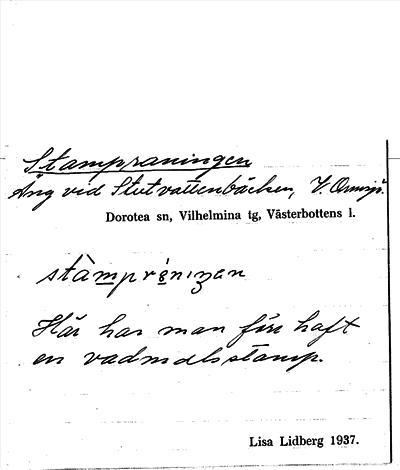 Stampraningen
Äng vid Stutvattenbäcken, V. Ormsjö.
Dorotea sn, Vilhelmina tg, Västerbottens l.
stàmpränıŋen
Här har man förr haft
en vadmalsstamp.
Lisa Lidberg 1937.